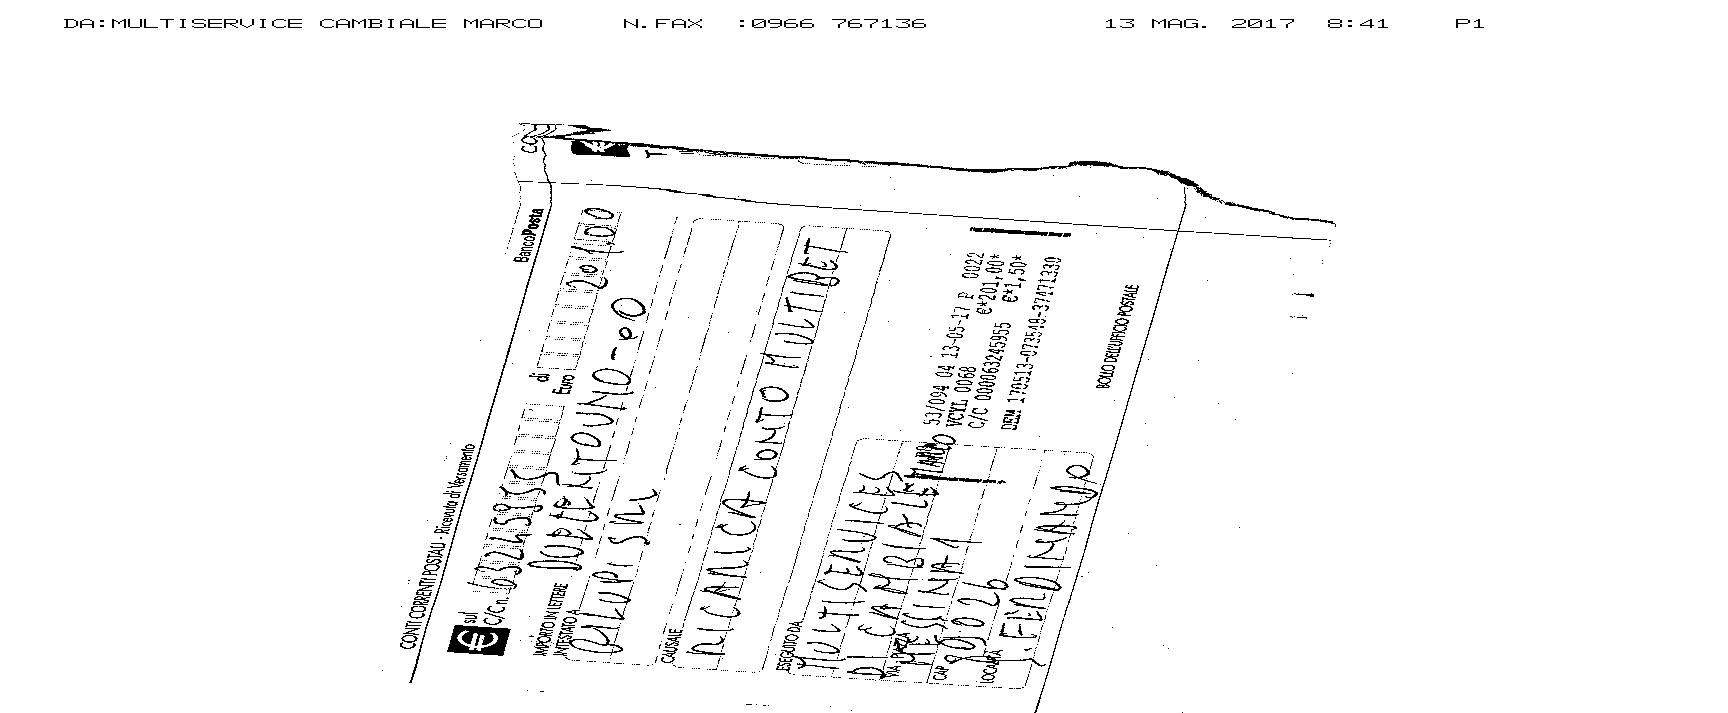 DA:MULTISERVICE CAMBIALE MARCO N.FAX :0966 767136 13 MAG. 2017 8:41 P1
CONTI CORRENTI POSTALI - Ricevuta di Versamento
BancoPosta
€ sul
C/C n. 63245955
di
Euro 201,00
IMPORTO IN LETTERE DUECENTOUNO-00
INTESTATO A
PILUPI SRL
CAUSALE
RICARICA CONTO MULTIBET
ESEGUITO DA
MULTISERVICES
DI CAMBIALE MARCO
VIA - PIAZZA
MESSINA 1
CAP 89026
LOCALITÀ S. FERDINANDO
53/094 04 13-05-17 P 0022
VCYL 0068 €*201,00*
C/C 000063245955 €*1,50*
DEM 170513-073549-37471330
BOLLO DELL'UFFICIO POSTALE